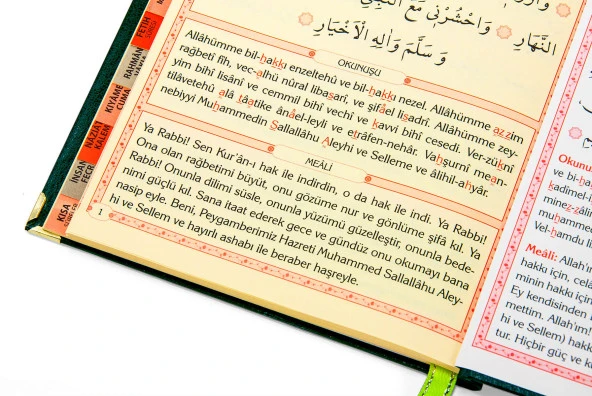 النَّهَارِ ۞ وَاحْشُرْنِي مَعَ النَّبِيِّ
وَ سَلَّمَ وَاٰلِهِ الْاَخْيَارِ
OKUNUŞU
Allâhümme bil-hakkı enzeltehû ve bil-hakkı nezel. Allâhümme azzim
rağbetî fîh, vec-alhü nûral libasarî, ve şifâel lisadrî. Allâhümme zey-
yim bihî lisânî ve cemmil bihî vechî ve kavvi bihî cesedî. Ver-zúknî
tilâvetehû alâ tâatike ânâel-leyli ve etrâfen-nehâr. Vahşurnî mean-
nebiyyi Muhammedin Sallallâhu Aleyhi ve Selleme ve âlihil-ahyâr.
MEÂLİ
Ya Rabbi! Sen Kur'ân-ı hak ile indirdin, o da hak ile indi. Ya Rabbi!
Ona olan rağbetimi büyüt, onu gözüme nur ve gönlüme şifâ kıl. Ya
Rabbi! Onunla dilimi süsle, onunla yüzümü güzelleştir, onunla bede-
nimi güçlü kıl. Sana itaat ederek gece ve gündüz onu okumayı bana
nasip eyle. Beni, Peygamberimiz Hazreti Muhammed Sallallâhu Aley-
hi ve Sellem ve hayırlı ashabı ile beraber haşreyle.
1
FETİH
RAHMÂN
KIYÂME
CUMA
NÂZİÂT
KALEM
İNSAN
FECR
KISA
Okunu
ve bi-h
kadîmel-i
minez-zâli
muhamme
Vel-hamdu li
Meâli: Allah'ı
hakkı için, celâ
minin hakkı için
Ey kendisinden
mettim. Allah'ım!
hi ve Sellem) hakk
tur. Hiçbir güç ve k